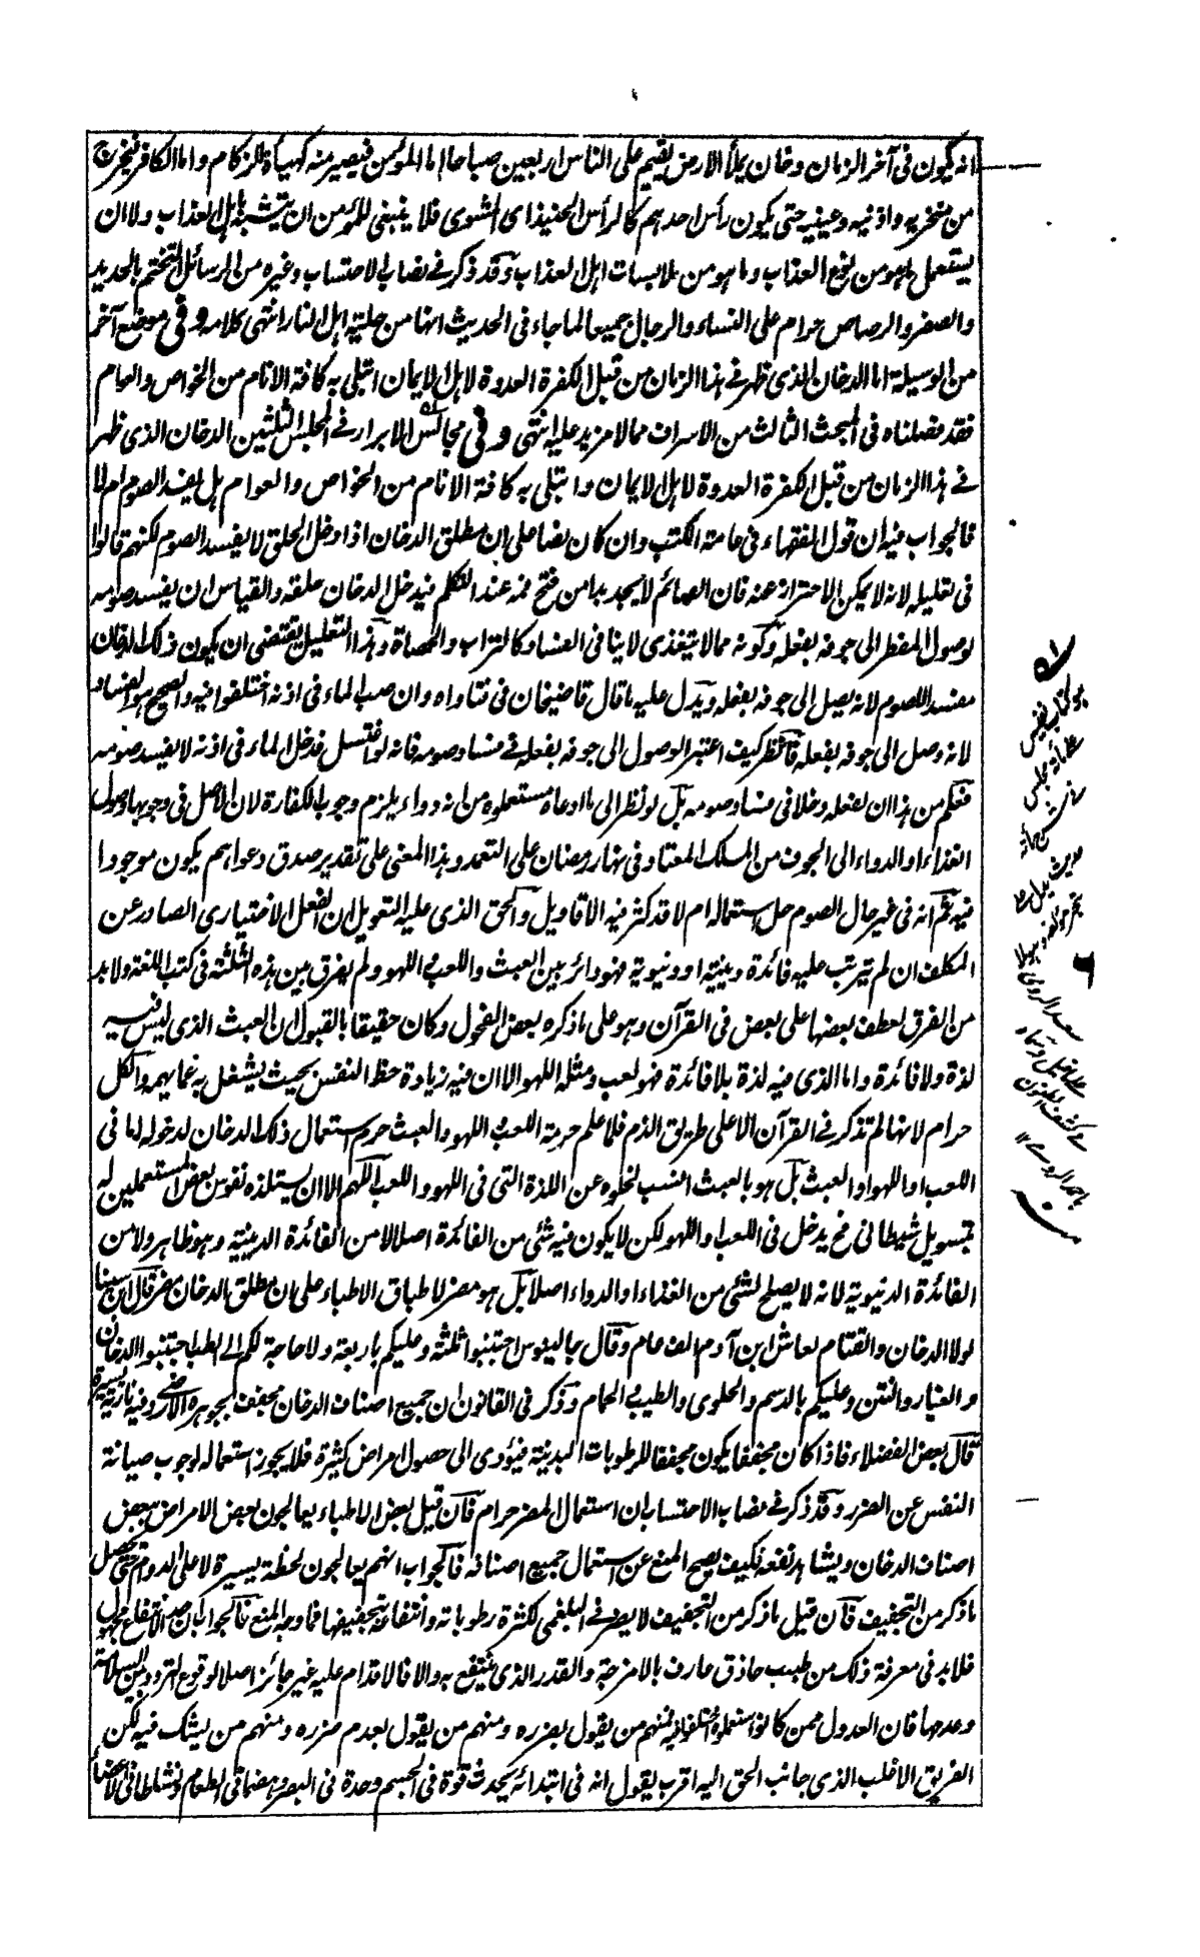 انه يكون فى آخر الزمان دخان يملأ الارض يقيم على الناس اربعين صباحا اما المؤمن فيصير منه كهيأة الزكام و اما الكافر فيخرج
من منخريه و اذنيه و عينيه حتى يكون رأس احدهم كالرأس الحنيذ اى المشوى فلا ينبغى للمؤمن ان يتشبه باهل العذاب و لا ان
يستعمل ما هو من نوع العذاب و ما هو من ملابسات اهل العذاب و قد ذكر فى نصاب الاحتساب و غيره من الرسائل التختم بالحديد
و الصفر و الرصاص حرام على النساء و الرجال جميعا لما جاء فى الحديث انها من حلية اهل النار انتهى كلامه و فى موضع آخر
من الوسيلة اما الدخان الذى ظهر فى هذا الزمان من قبل الكفرة العدوة لاهل الايمان ابتلى به كافة الانام من الخواص و العام
فقد فصلناه فى المبحث الثالث من الاسراف مما لا مزيد عليه انتهى و فى مجالس الابرار فى المجلس الثلثين الدخان الذى ظهر
فى هذا الزمان من قبل الكفرة العدوة لاهل الايمان و ابتلى به كافة الانام من الخواص و العوام هل يفسد الصوم ام لا
فالجواب فيه ان قول الفقهاء فى عامة الكتب و ان كان نصا على ان مطلق الدخان اذا دخل الحلق لا يفسد الصوم لكنهم قالوا
فى تعليله لانه لا يمكن الاحتراز عنه فان الصائم لا يجد بدا من فتح فمه عند التكلم فيدخل الدخان حلقه و القياس ان يفسد صومه
لوصول المفطر الى جوفه بفعله و كونه مما لا يتغذى لا ينافى الفساد كالتراب و الحصاة و هذا التعليل يقتضى ان يكون ذلك الدخان
مفسدا للصوم لانه يصل الى جوفه بفعله و يدل عليه ما قال قاضيخان فى فتاواه و ان صب الماء فى اذنه اختلفوا فيه و الصحيح هو الفساد
لانه وصل الى جوفه بفعله فانظر كيف اعتبر الوصول الى جوفه بفعله فى فساد صومه فانه لو اغتسل فدخل الماء فى اذنه لا يفسد صومه
فعلم من هذا ان لفعله دخلا فى فساد صومه بل لو نظر الى ما ادعاه مستعملوه من انه دواء يلزم وجوب الكفارة لان الاصل فى وجوبها وصول
الغذاء او الدواء الى الجوف من المسلك المعتاد فى نهار رمضان على التعمد و هذا المعنى على تقدير صدق دعواهم يكون موجودا
فيه ثم انه فى غير حال الصوم حل استعماله ام لا قد كثر فيه الاقاويل و الحق الذى عليه التعويل ان الفعل الاختيارى الصادر عن
المكلف ان لم يترتب عليه فائدة دينية او دنيوية فهو دائر بين العبث و اللعب و اللهو و لم يفرق بين هذه الثلثة فى كتب اللغة و لا بد
من الفرق لعطف بعضها على بعض فى القرآن و هو على ما ذكره بعض الفحول و كان حقيقا بالقبول ان العبث الذى ليس فيه
لذة و لا فائدة و اما الذى فيه لذة بلا فائدة فهو لعب و مثله اللهو الا ان فيه زيادة حظ النفس بحيث يشتغل به عما يهمه و الكل
حرام لانها لم تذكر فى القرآن الا على طريق الذم فلما علم حرمة اللعب و اللهو و العبث حرم استعمال ذلك الدخان لدخوله اما فى
اللعب او اللهو او العبث بل هو بالعبث انسب لخلوه عن اللذة التى فى اللهو و اللعب اللهم الا ان يستلذه نفوس بعض المستعملين له
بتسويل شيطانى فح يدخل فى اللعب و اللهو لكن لا يكون فيه شئ من الفائدة اصلا لا من الفائدة الدينية و هو ظاهر و لا من
الفائدة الدنيوية لانه لا يصلح لشئ من الغذاء او الدواء اصلا بل هو مضر لاطباق الاطباء على ان مطلق الدخان مضر قال ابن سينا
لو لا الدخان و القتام لعاش ابن آدم الف عام و قال جالينوس اجتنبوا ثلثة و عليكم باربعة و لا حاجة لكم الى الطب اجتنبوا الدخان
و الغبار و النتن و عليكم بالدسم و الحلوى و الطيب و الحمام و ذكر فى القانون ان جميع اصناف الدخان مجفف لجوهره الارضى و فيه نارية يسيرة
قال بعض الفضلاء فاذا كان مجففا يكون مجففا للرطوبات البدنية فيؤدى الى حصول امراض كثيرة فلا يجوز استعماله لوجوب صيانة
النفس عن الضرر و قد ذكر فى نصاب الاحتساب ان استعمال المضر حرام فان قيل بعض الاطباء يعالجون بعض الامراض ببعض
اصناف الدخان و يشاهد نفعه فكيف يصح المنع عن استعمال جميع اصنافه فالجواب انهم يعالجون لحظة يسيرة لا على الدوام حتى يحصل
ما ذكر من التجفيف فان قيل ما ذكر من التجفيف لا يضر فى البلغمى لكثرة رطوباته و انتفاعه بتجفيفها فما وجه المنع فالجواب ان حد الانتفاع مجهول
فلا بد فى معرفة ذلك من طبيب حاذق عارف بالامزجة و القدر الذى ينتفع به و الا فالاقدام عليه غير جائز اصلا لوقوع التردد بين السلامة
و عدمها فان العدول ممن كانوا استعملوه اختلفوا فيه فمنهم من يقول بضرره و منهم من يقول بعدم ضرره و منهم من يشك فيه لكن
الفريق الاغلب الذى جانب الحق اليه اقرب يقول انه فى ابتدائه يحدث قوة فى الجسم و حدة فى البصر و هضما فى الطعام و نشاطا فى الاعضاء
هو كتاب نفيس
على مائة مجلس